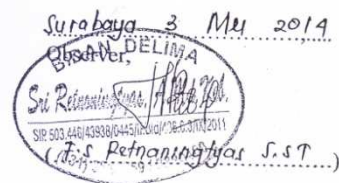 Surabaya 3 Mei 2014
Observer,
BIDAN DELIMA
Sri Retnaningtyas,
SIP. 503.446/43938/0445/
2011
(F.s Retnaningtyas S.ST)